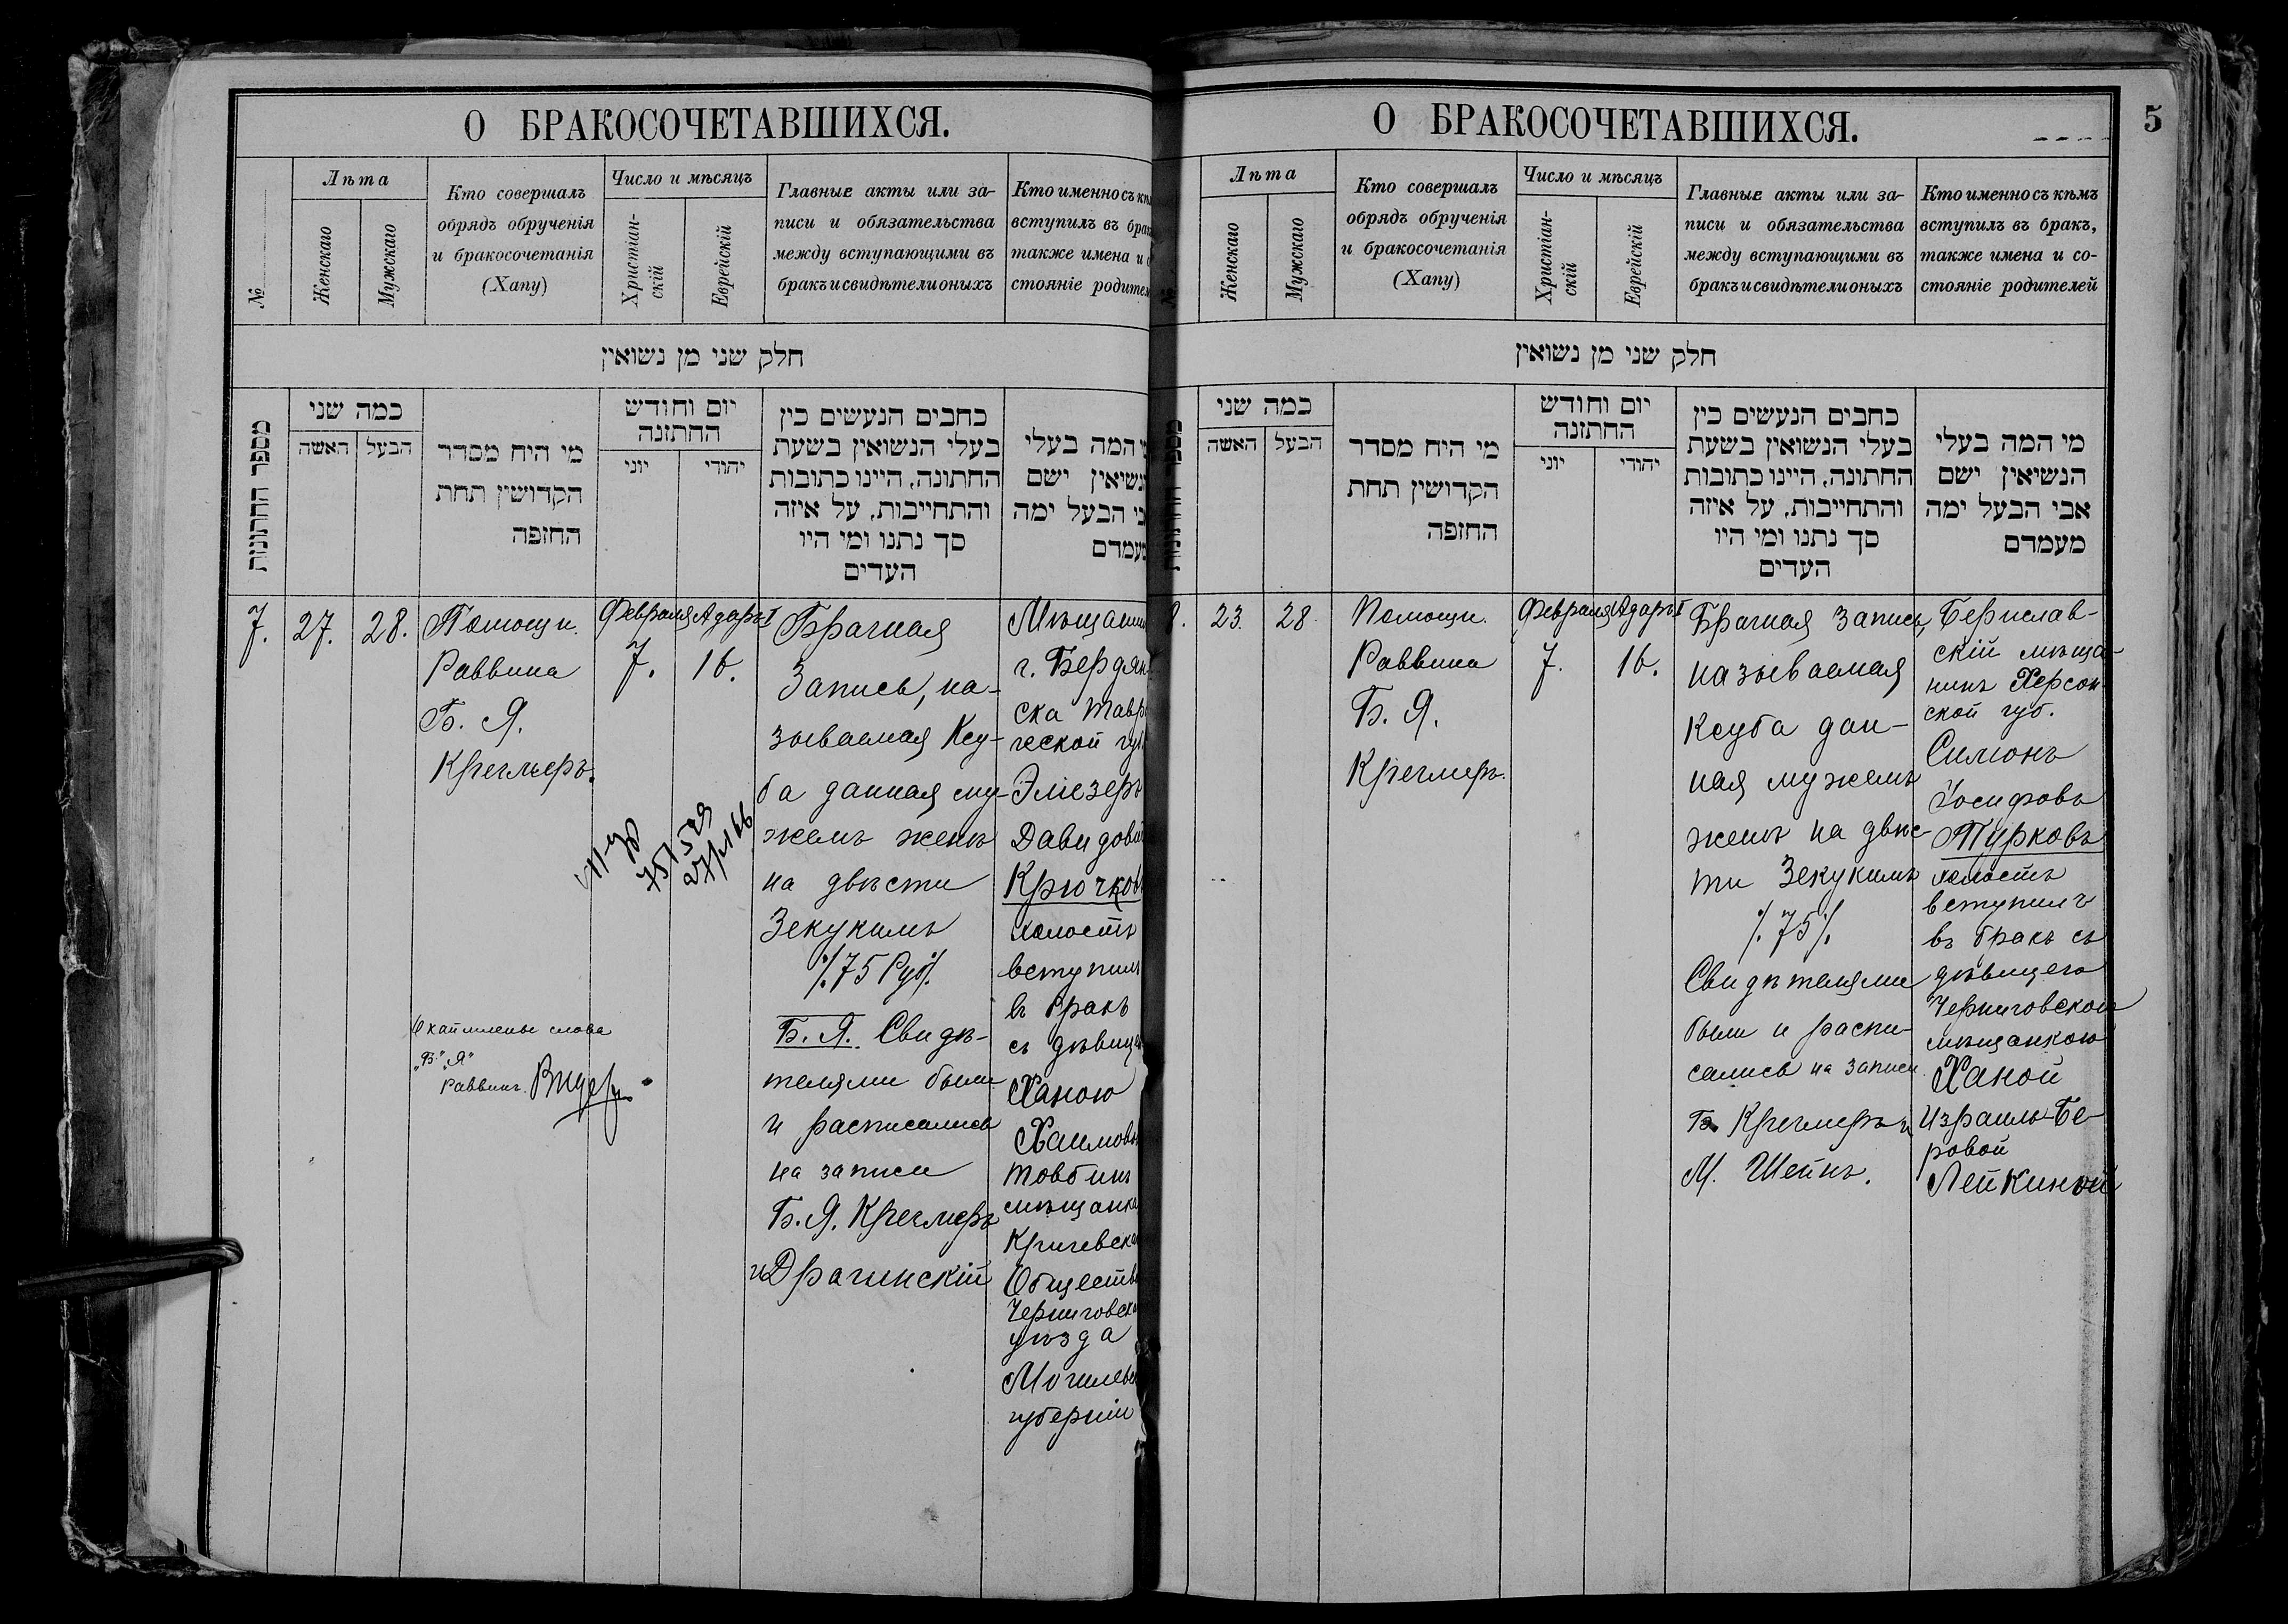 О БРАКОСОЧЕТАВШИХСЯ.
№
Лѣта
Женскаго
Мужскаго
Кто совершалъ
обрядъ обрученія
и бракосочетанія
(Хапу)
Число и мѣсяцъ
Христіан-
скій
Еврейскій
Главные акты или за-
писи и обязательства
между вступающими въ
бракъ и свидѣтели оныхъ
Кто именно съ
вступилъ въ
также имена и
стояніе
חלק שני מן נשואין
מספר החתונות
כמה שני
האשה
הבעל
מי היח מסדר
הקדושין תחת
החופה
יום וחודש
החתונה
יוני
יהודי
כתבים הנעשים בין
בעלי הנשואין בשעת
החתונה, היינו כתובות
והתחייבות, על איזה
סך נתנו ומי היו
העדים
המה בעלי
ישם
הבעל ימה
7.
27.
28.
Помощн.
Раввина
Б. Я.
Кречмеръ.
Февраля
7.
Адаръ I
16.
Брачная
Запись, на-
зываемая Ксу-
ба данная му-
жемъ женѣ
на двѣсти
Зекукимъ
75 Руб.
Б. Я. Свидѣ-
телями были
и расписались
на записи
Б. Я. Кречмеръ
и Драгинскій
г.
ска
ческой
Эліезеръ
холостъ
вступилъ
въ бракъ
съ
Ханою
Товбинъ
уѣзда
губерніи
слова
„Б.“ „Я“
Раввинъ
О БРАКОСОЧЕТАВШИХСЯ.
5
Лѣта
Женскаго
Мужскаго
Кто совершалъ
обрядъ обрученія
и бракосочетанія
(Хапу)
Число и мѣсяцъ
Христіан-
скій
Еврейскій
Главные акты или за-
писи и обязательства
между вступающими въ
бракъ и свидѣтели оныхъ
Кто именно съ кѣмъ
вступилъ въ бракъ,
также имена и со-
стояніе родителей
חלק שני מן נשואין
כמה שני
האשה
הבעל
מי היח מסדר
הקדושין תחת
החופה
יום וחודש
החתונה
יוני
יהודי
כתבים הנעשים בין
בעלי הנשואין בשעת
החתונה, היינו כתובות
והתחייבות, על איזה
סך נתנו ומי היו
העדים
מי המה בעלי
הנשיאין ישם
אבי הבעל ימה
מעמדם
8.
23.
28.
Помощн.
Раввина
Б. Я.
Кречмеръ.
Февраля
7.
Адаръ I
16.
Брачная Запись,
называемая
Ксуба дан-
ная мужемъ
женѣ на двѣс-
ти Зекукимъ
75
Свидѣтелями
были и распи-
сались на записи
Б. Кречмеръ и
М. Шейнъ.
Берислав-
скій мѣща-
нинъ Херсон-
ской губ.
Симонъ
Іосифовъ
Турковъ
холостъ
вступилъ
въ бракъ съ
дѣвицею
Черниговской
мѣщанкою
Ханой
Израиль-Бе-
ровой
Лейкиной